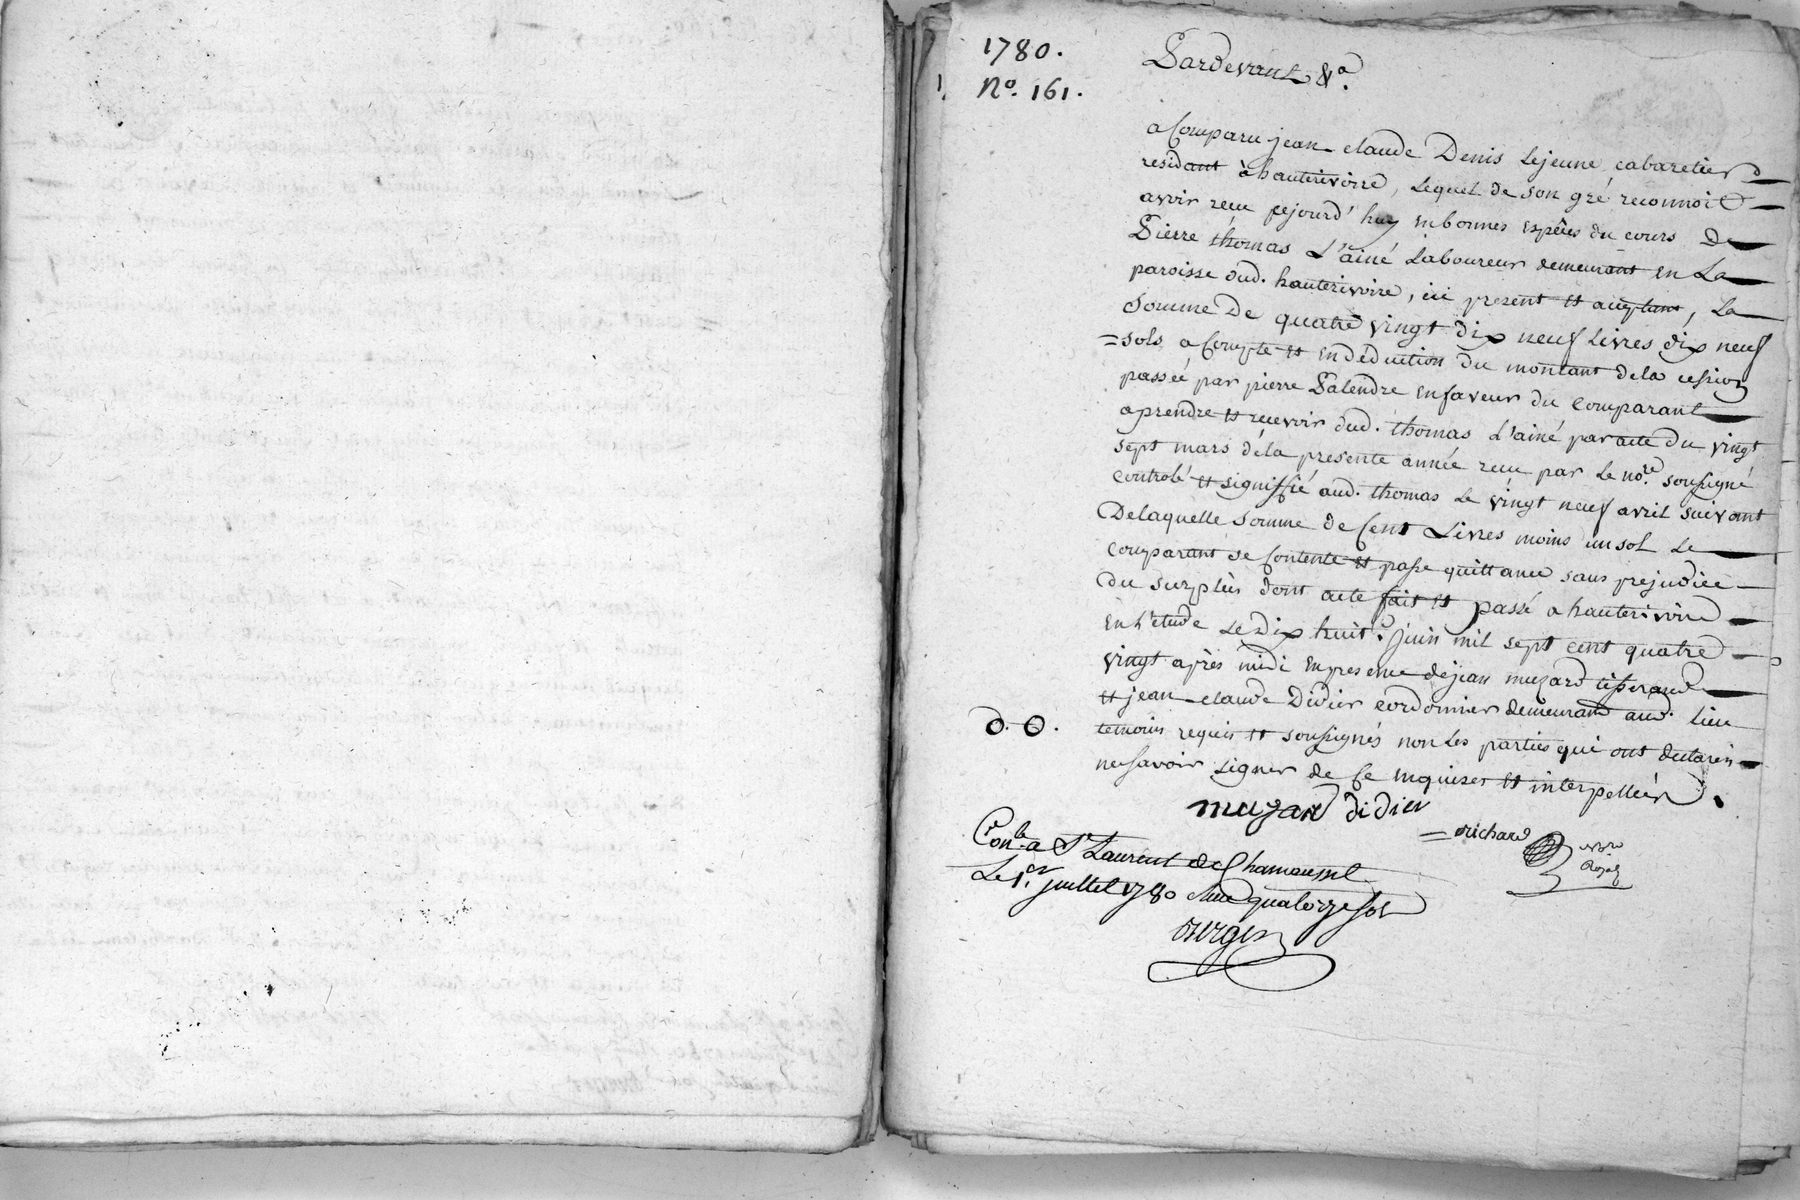 1780.
N.° 161.
Pardevant &a.
a Comparu jean claude Denis Lejeune cabaretier
residant à hauterivoire, Lequel de son gré reconnoit
avoir recu cejourd'huy en bonnes espèces du cours De
Pierre thomas L'ainé Laboureur demeurant en La
paroisse dud. hauterivoire, ici present et acceptant, La
Somme De quatre vingt dix neuf Livres dix neuf
sols a Compte et en deduction du montant dela cession
passée par pierre Palendre en faveur du Comparant
a prendre et recevoir dud. thomas L'ainé par acte du vingt
sept mars dela presente année recu par le no.re sousigné
controlé et signiffié aud. thomas le vingt neuf avril suivant
De laquelle somme de Cent Livres moins un sol Le
comparant se Contente et passe quittance sans prejudice
Du surplus dont acte fait et passé a hauterivoire
en L'etude Le dix huit.e juin mil sept cent quatre
vingt après midi en presence de jean muzard tisserand
et jean claude Didier cordonnier demeurant aud. lieu
temoins requis et sousignés non les parties qui ont declarés
ne savoir signer de Ce enquises et interpellées.
D. O.
muzard didier
richard
no.re Royal
Con.lé a St Laurent de Chamousset
Le 1.er juillet 1780 quatorze sols